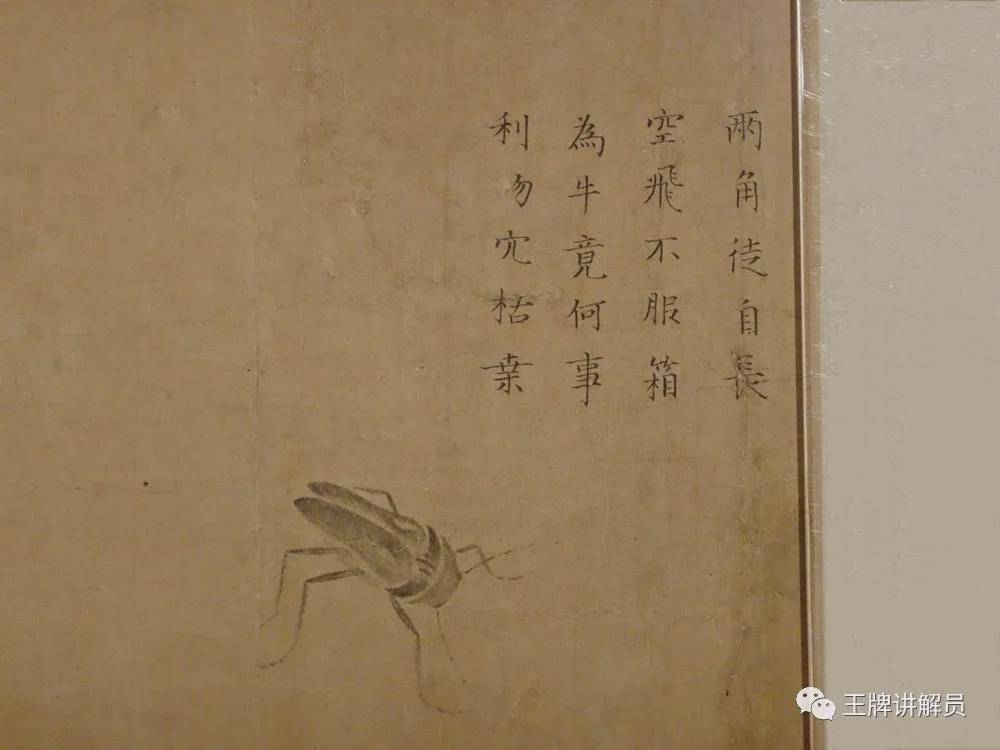 兩角徒自長
空飛不服箱
為牛竟何事
利勿穴枯桒
王牌讲解员